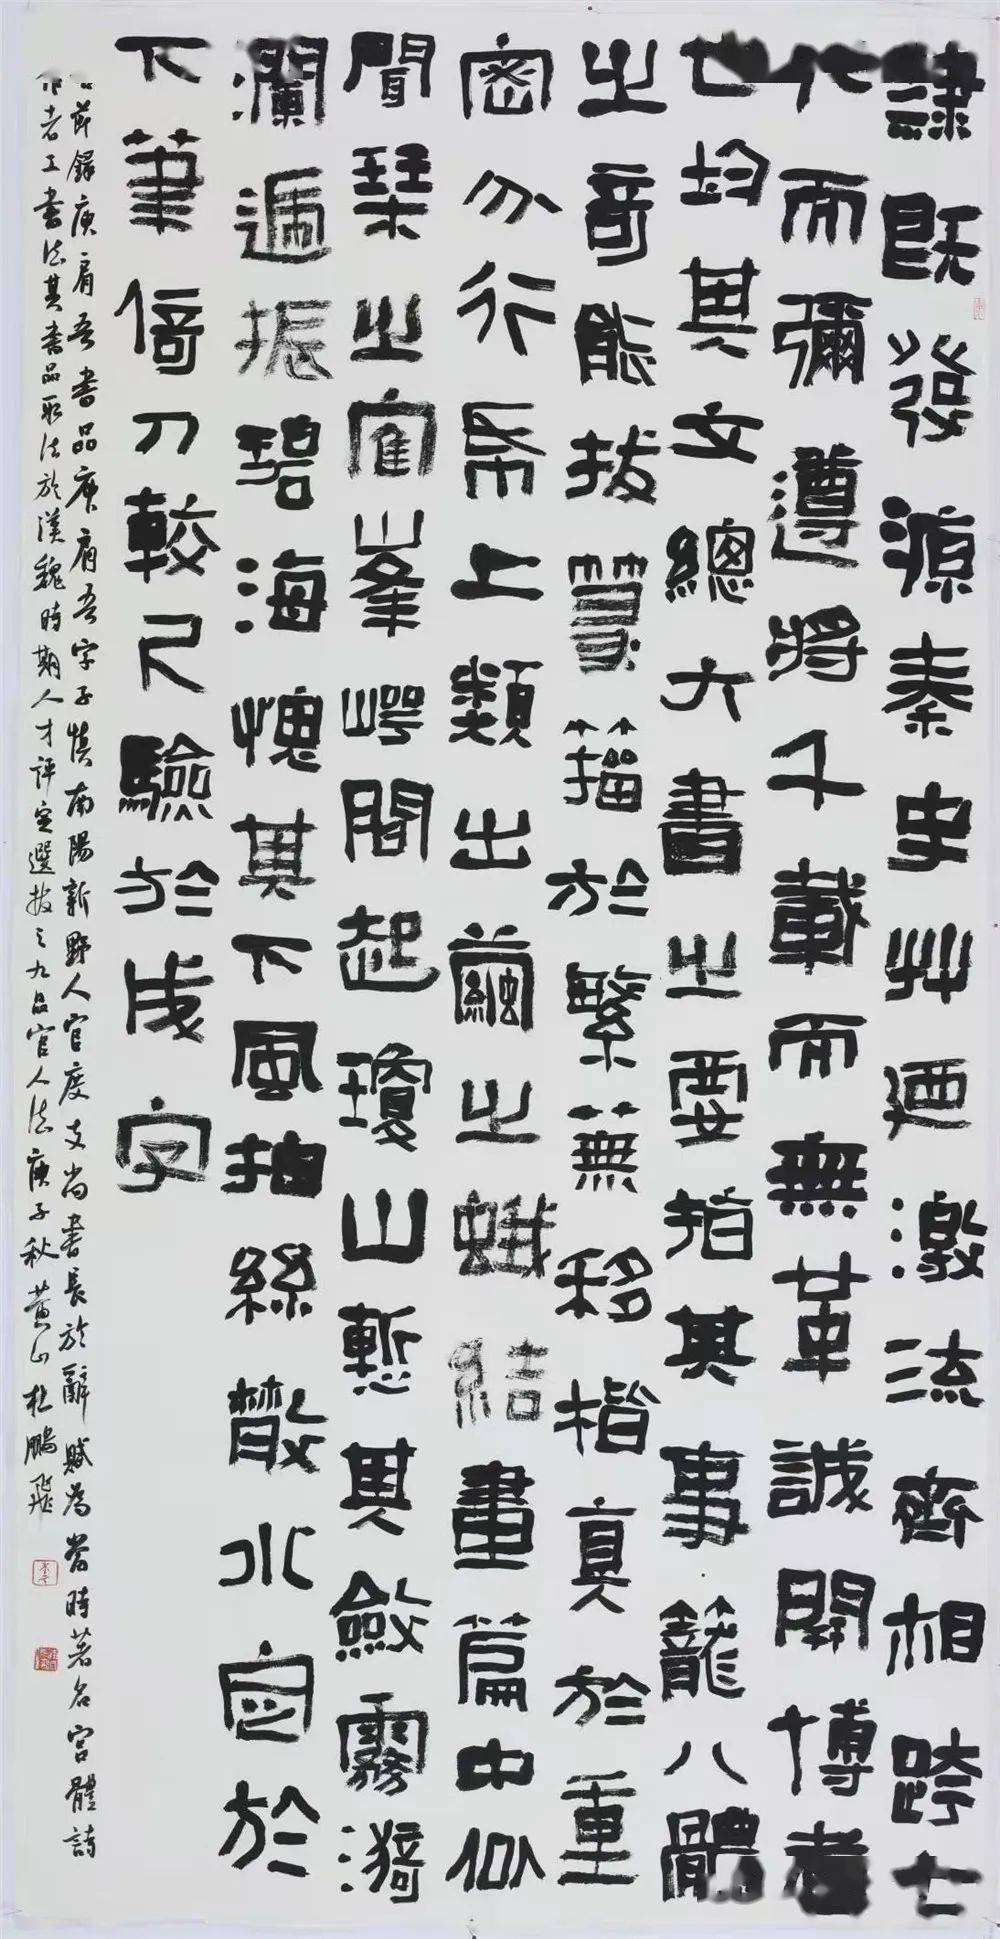 隸既發源秦史艸迺激流齊相跨七
代而彌遵將千載而無革誠開博者
七均其文總六書之要指其事籠八體
之奇能拔篆籀於繁蕪移楷真於重
密分行帋上類出繭之蛾結畫篇中似
聞琴之寉峯崿間起瓊山慙其斂霧漪
瀾遞振碧海愧其下風抽絲散水定於
下筆倚刀較尺驗於成字
節録庾肩吾書品庾肩吾字子慎南陽新野人官度支尚書長於辭賦為當時著名宮體詩
者工書法其書品取法於漢魏時期人才評定選拔之九品官人法庚子秋黄山杜鵬飛